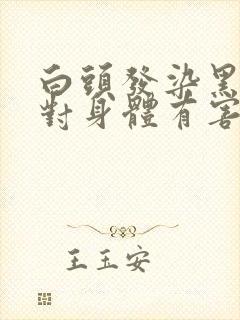 白頭發染黑
對身體有害
王玉安